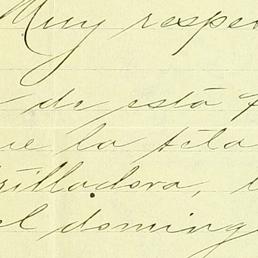 Muy respe
de esta f
ue la tela
illadora, l
el doming